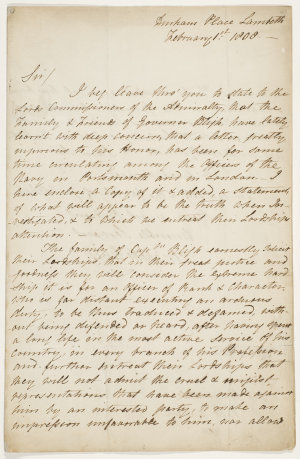 Durham Place Lambeth
February 1st 1808 —
Sir/
I beg leave thro' you to state to the
Lords Commissioners of the Admiralty, that the
Family & Friends of Governor Bligh have lately
learnt with deep concern, that a letter, greatly
injurious to his Honor, has been for some
time circulating among the Officers of the
Navy in Portsmouth and in London. I
have enclosed a Copy of it & added a Statement
of what will appear to be the truth when In-
vestigated, & to which we entreat their Lordships
attention. —
The family of Captn. Bligh earnestly desire
their Lordships that in their great justice and
goodness they will consider the extreme hard
ship it is for an Officer of Rank & Character
who is far distant executing an arduous
duty, to be thus traduced & defamed, with-
out being defended or heard, after having spent
a long life in the most active service of his
Country, in every branch of his Profession
and further entreat their Lordships that
they will not admit the cruel & unjust
representations that have been made against
him by an interested party, to make an
impression unfavorable to him, nor allow